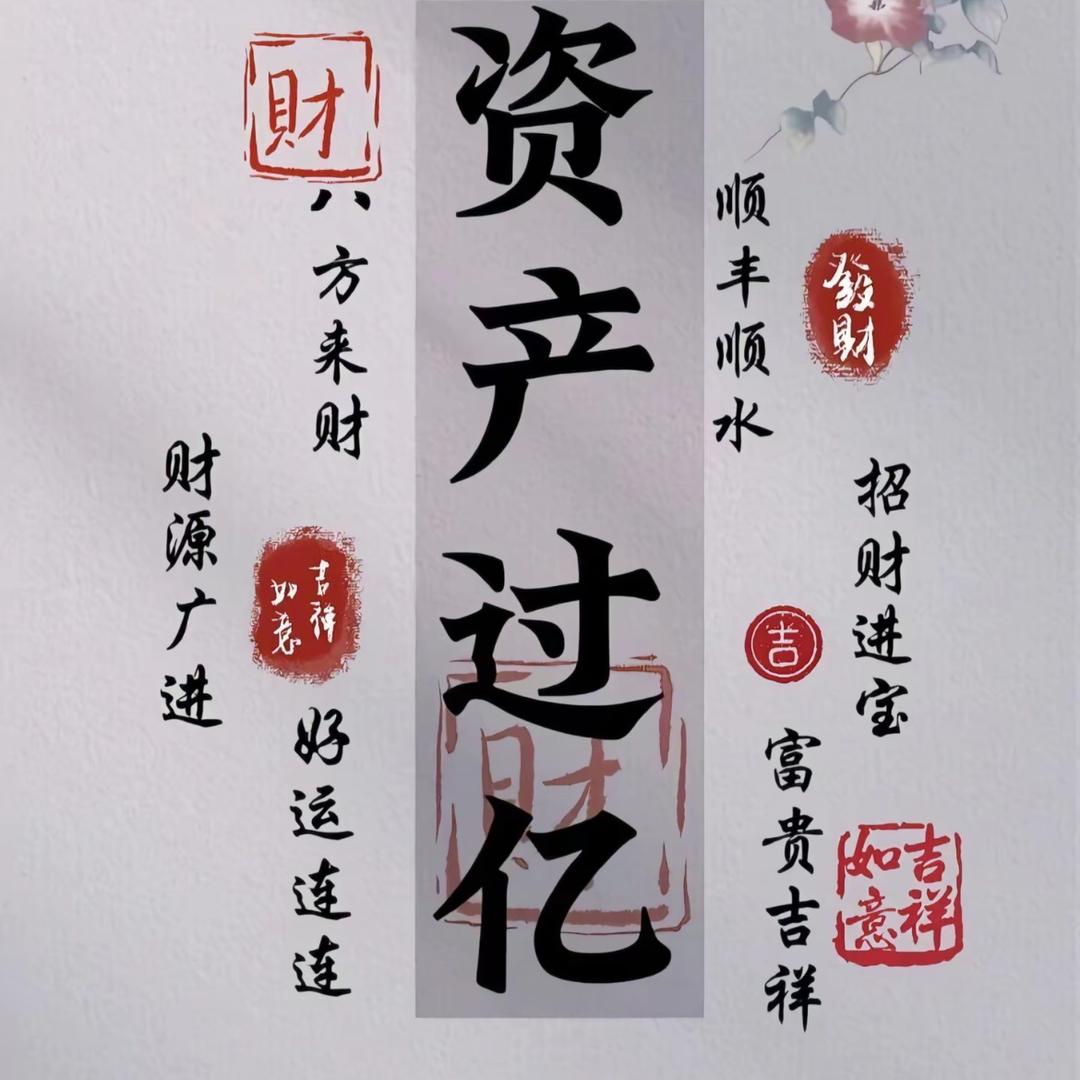 财
八方来财
财源广进
吉祥
如意
好运连连
资产过亿
财
顺丰顺水
發财
招财进宝
吉
富贵吉祥
吉祥
如意